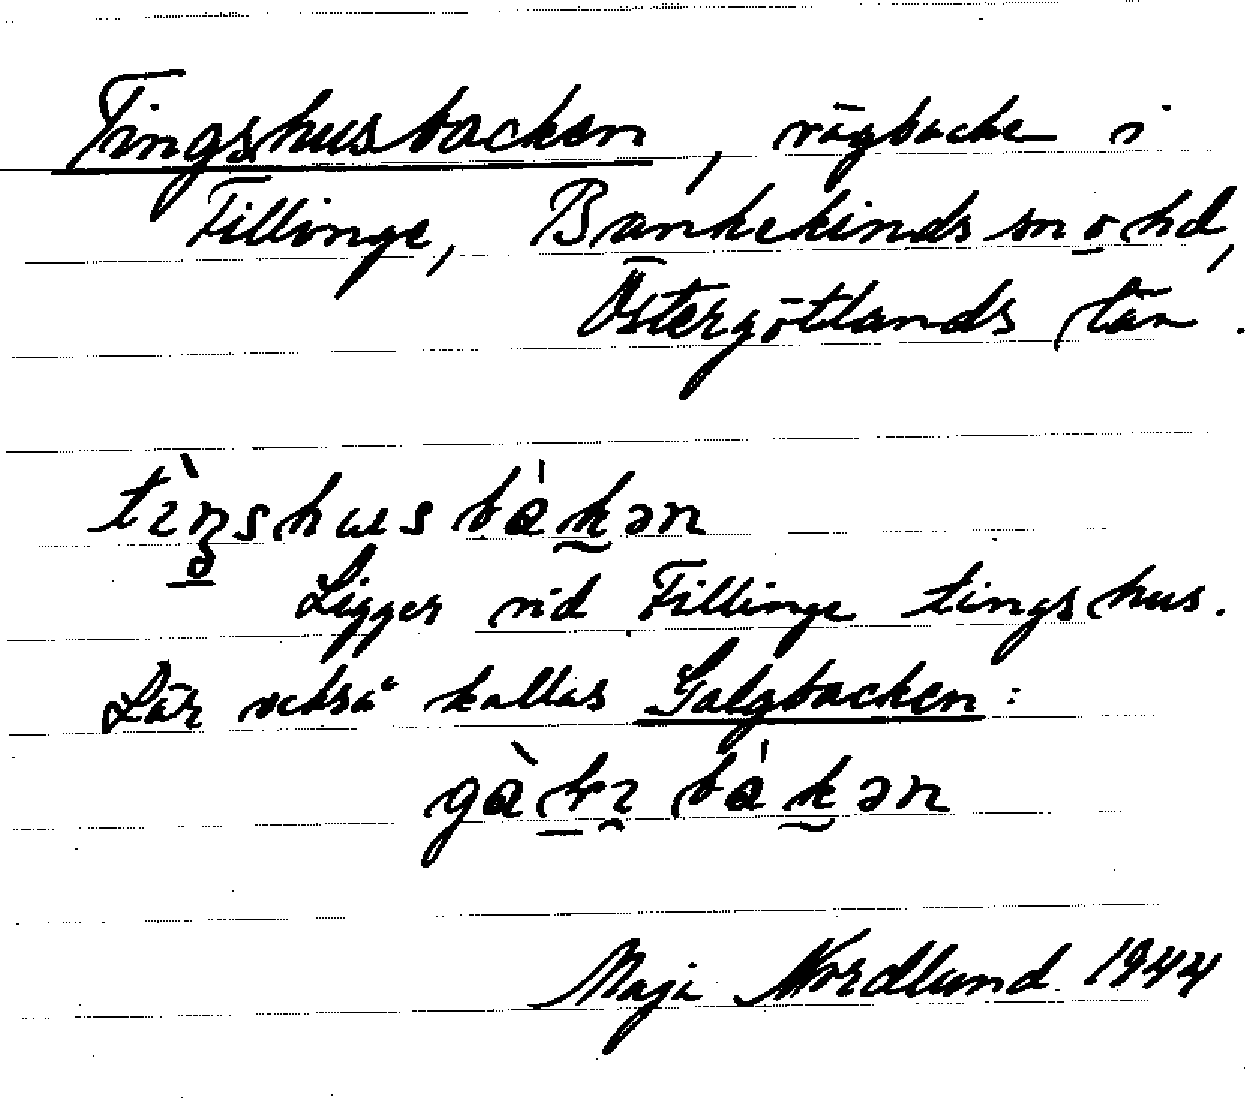 Tingshusbacken, vägbacke i
Fillinge, Bankekinds sn o hd,
Östergötlands län.
tìŋshusbàkən
Ligger vid Fillinge tingshus.
Lär också kallas Galgbacken:
Maja Nordlund 1944